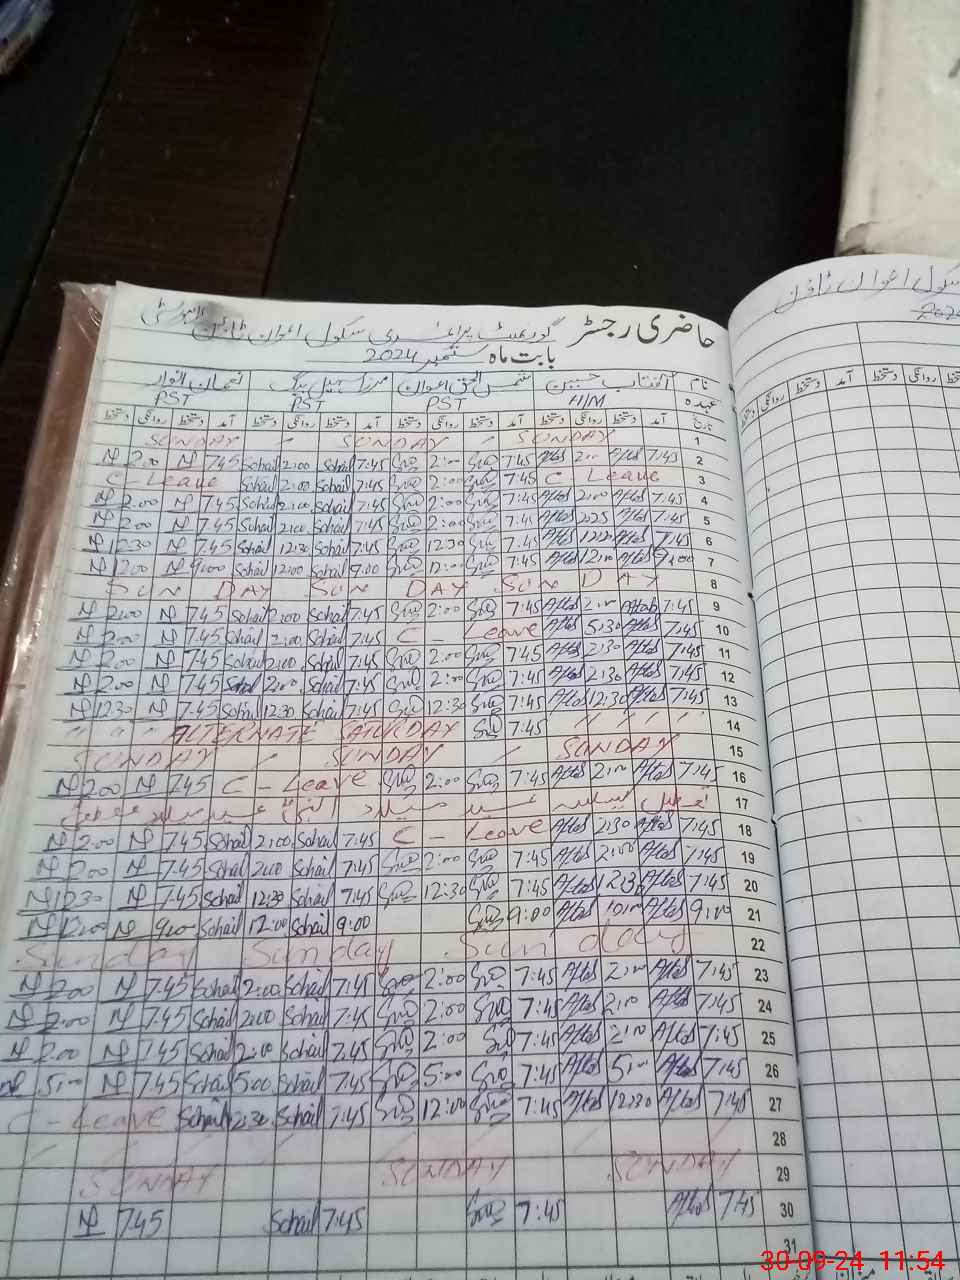 حاضری رجسٹر گورنمنٹ پرائمری سکول اعوان ٹاؤن
بابت ماہ ستمبر 2024
نام آفتاب حسین شمس الحق اعوان مرزا سہیل بیگ نعمان انور
عہدہ H/M PST PST PST
تاریخ آمد دستخط روانگی دستخط آمد دستخط روانگی دستخط آمد دستخط روانگی دستخط آمد دستخط روانگی دستخط
SUNDAY SUNDAY SUNDAY 1
2:00 7:45 Sohail 2:00 Sohail 7:45 2:00 7:45 Aftab 2:00 Aftab 7:45 2
C - Leave Sohail 2:00 Sohail 7:45 2:00 7:45 C - Leave 3
2:00 7:45 Sohail 2:00 Sohail 7:45 2:00 7:45 Aftab 2:00 Aftab 7:45 4
2:00 7:45 Sohail 2:00 Sohail 7:45 2:00 7:45 Aftab Aftab 7:45 5
12:30 7:45 Sohail 12:30 Sohail 7:45 12:30 7:45 Aftab Aftab 7:45 6
12:00 9:00 Sohail 12:00 Sohail 9:00 12:00 7:45 Aftab 12:00 Aftab 9:00 7
SUN DAY SUN DAY SUN DAY 8
2:00 7:45 Sohail 2:00 Sohail 7:45 2:00 7:45 Aftab 2:00 Aftab 7:45 9
2:00 7:45 Sohail 2:00 Sohail 7:45 C - Leave Aftab 5:30 Aftab 7:45 10
2:00 7:45 Sohail 2:00 Sohail 7:45 2:00 7:45 Aftab 2:30 Aftab 7:45 11
2:00 7:45 Sohail 2:00 Sohail 7:45 2:00 7:45 Aftab 2:30 Aftab 7:45 12
12:30 7:45 Sohail 12:30 Sohail 7:45 12:30 7:45 Aftab 12:30 Aftab 7:45 13
" " " ALTERNATE SATURDAY 7:45 " " " " 14
SUNDAY SUNDAY SUNDAY 15
2:00 7:45 C - Leave 2:00 7:45 Aftab 2:00 Aftab 7:45 16
تعطیل بسلسلہ عید میلاد النبیؐ 17
2:00 7:45 Sohail 2:00 Sohail 7:45 C - Leave Aftab 2:30 Aftab 7:45 18
2:00 7:45 Sohail 2:00 Sohail 7:45 2:00 7:45 Aftab 2:00 Aftab 7:45 19
12:30 7:45 Sohail 12:30 Sohail 7:45 12:30 7:45 Aftab 12:30 Aftab 7:45 20
12:00 9:00 Sohail 12:00 Sohail 9:00 9:00 Aftab Aftab 9:00 21
Sunday Sunday Sunday 22
2:00 7:45 Sohail 2:00 Sohail 7:45 2:00 7:45 Aftab 2:00 Aftab 7:45 23
2:00 7:45 Sohail 2:00 Sohail 7:45 2:00 7:45 Aftab 2:00 Aftab 7:45 24
2:00 7:45 Sohail 2:00 Sohail 7:45 2:00 7:45 Aftab 2:00 Aftab 7:45 25
5:00 7:45 Sohail 5:00 Sohail 7:45 5:00 7:45 Aftab 5:00 Aftab 7:45 26
C - Leave Sohail 12:30 Sohail 7:45 12:00 7:45 Aftab 12:30 Aftab 7:45 27
28
SUNDAY SUNDAY SUNDAY 29
7:45 Sohail 7:45 7:45 Aftab 7:45 30
31
سکول اعوان ٹاؤن
2024
آمد دستخط روانگی دستخط
30-09-24 11:54